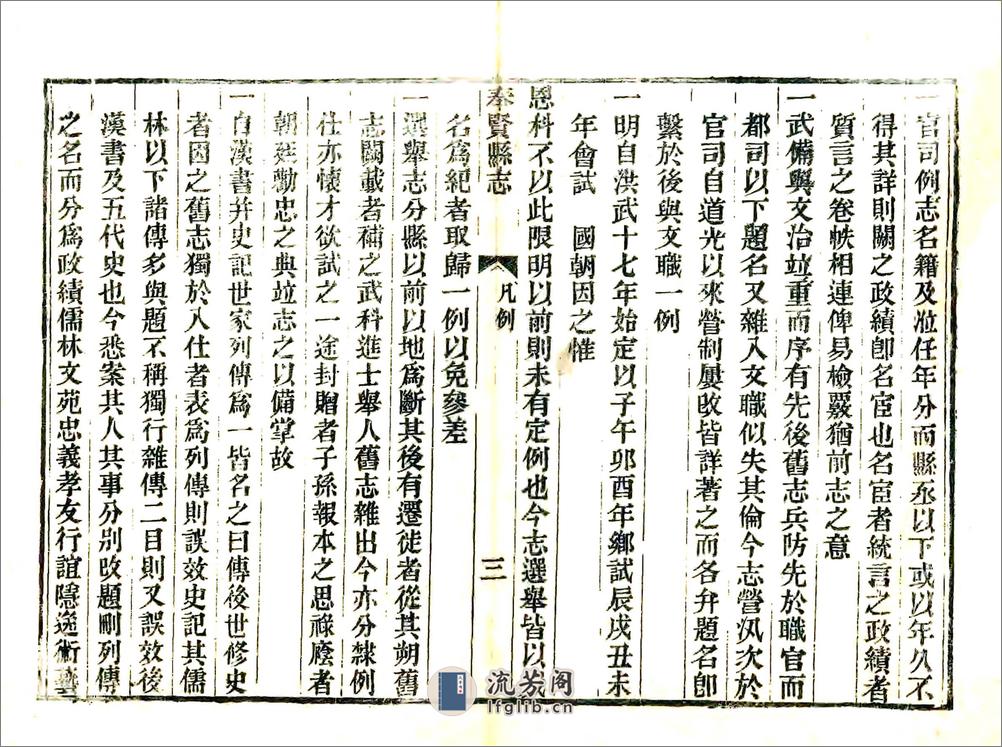 一官司例志名籍及涖任年分而縣丞以下或以年久不
得其詳則闕之政績卽名宦也名宦者統言之政績者
質言之卷帙相連俾易檢覈猶前志之意
一武備與文治竝重而序有先後舊志兵防先於職官而
都司以下題名又雜入文職似失其倫今志營汛次於
官司自道光以來營制屢改皆詳著之而各弁題名卽
繫於後與文職一例
一明自洪武十七年始定以子午卯酉年鄉試辰戌丑未
年會試　國朝因之惟
恩科不以此限明以前則未有定例也今志選舉皆以
奉賢縣志　凡例　三
名爲紀者取歸一例以免參差
一選舉志分縣以前以地爲斷其後有遷徙者從其朔舊
志闕載者補之武科進士舉人舊志雜出今亦分隸例
仕亦懷才欲試之一途封贈者子孫報本之思祿廕者
朝廷勸忠之典竝志之以備掌故
一自漢書并史記世家列傳爲一皆名之曰傳後世修史
者因之舊志獨於入仕者表爲列傳則誤效史記其儒
林以下諸傳多與題不稱獨行雜傳二目則又誤效後
漢書及五代史也今悉案其人其事分別改題刪列傳
之名而分爲政績儒林文苑忠義孝友行誼隱逸術藝
流芳阁
lfglib.cn